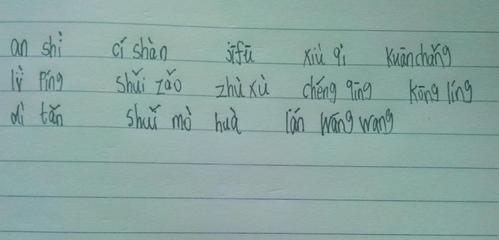 an shì cí shàn jī fū xiù qì kuānchǎng
lǜ píng shuǐ zǎo zhù xù chéng qīng kōng líng
dì tǎn shuǐ mò huà lán wāng wang